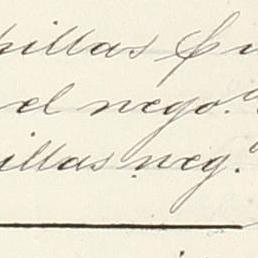 pillas
el nego.º
illas neg.º